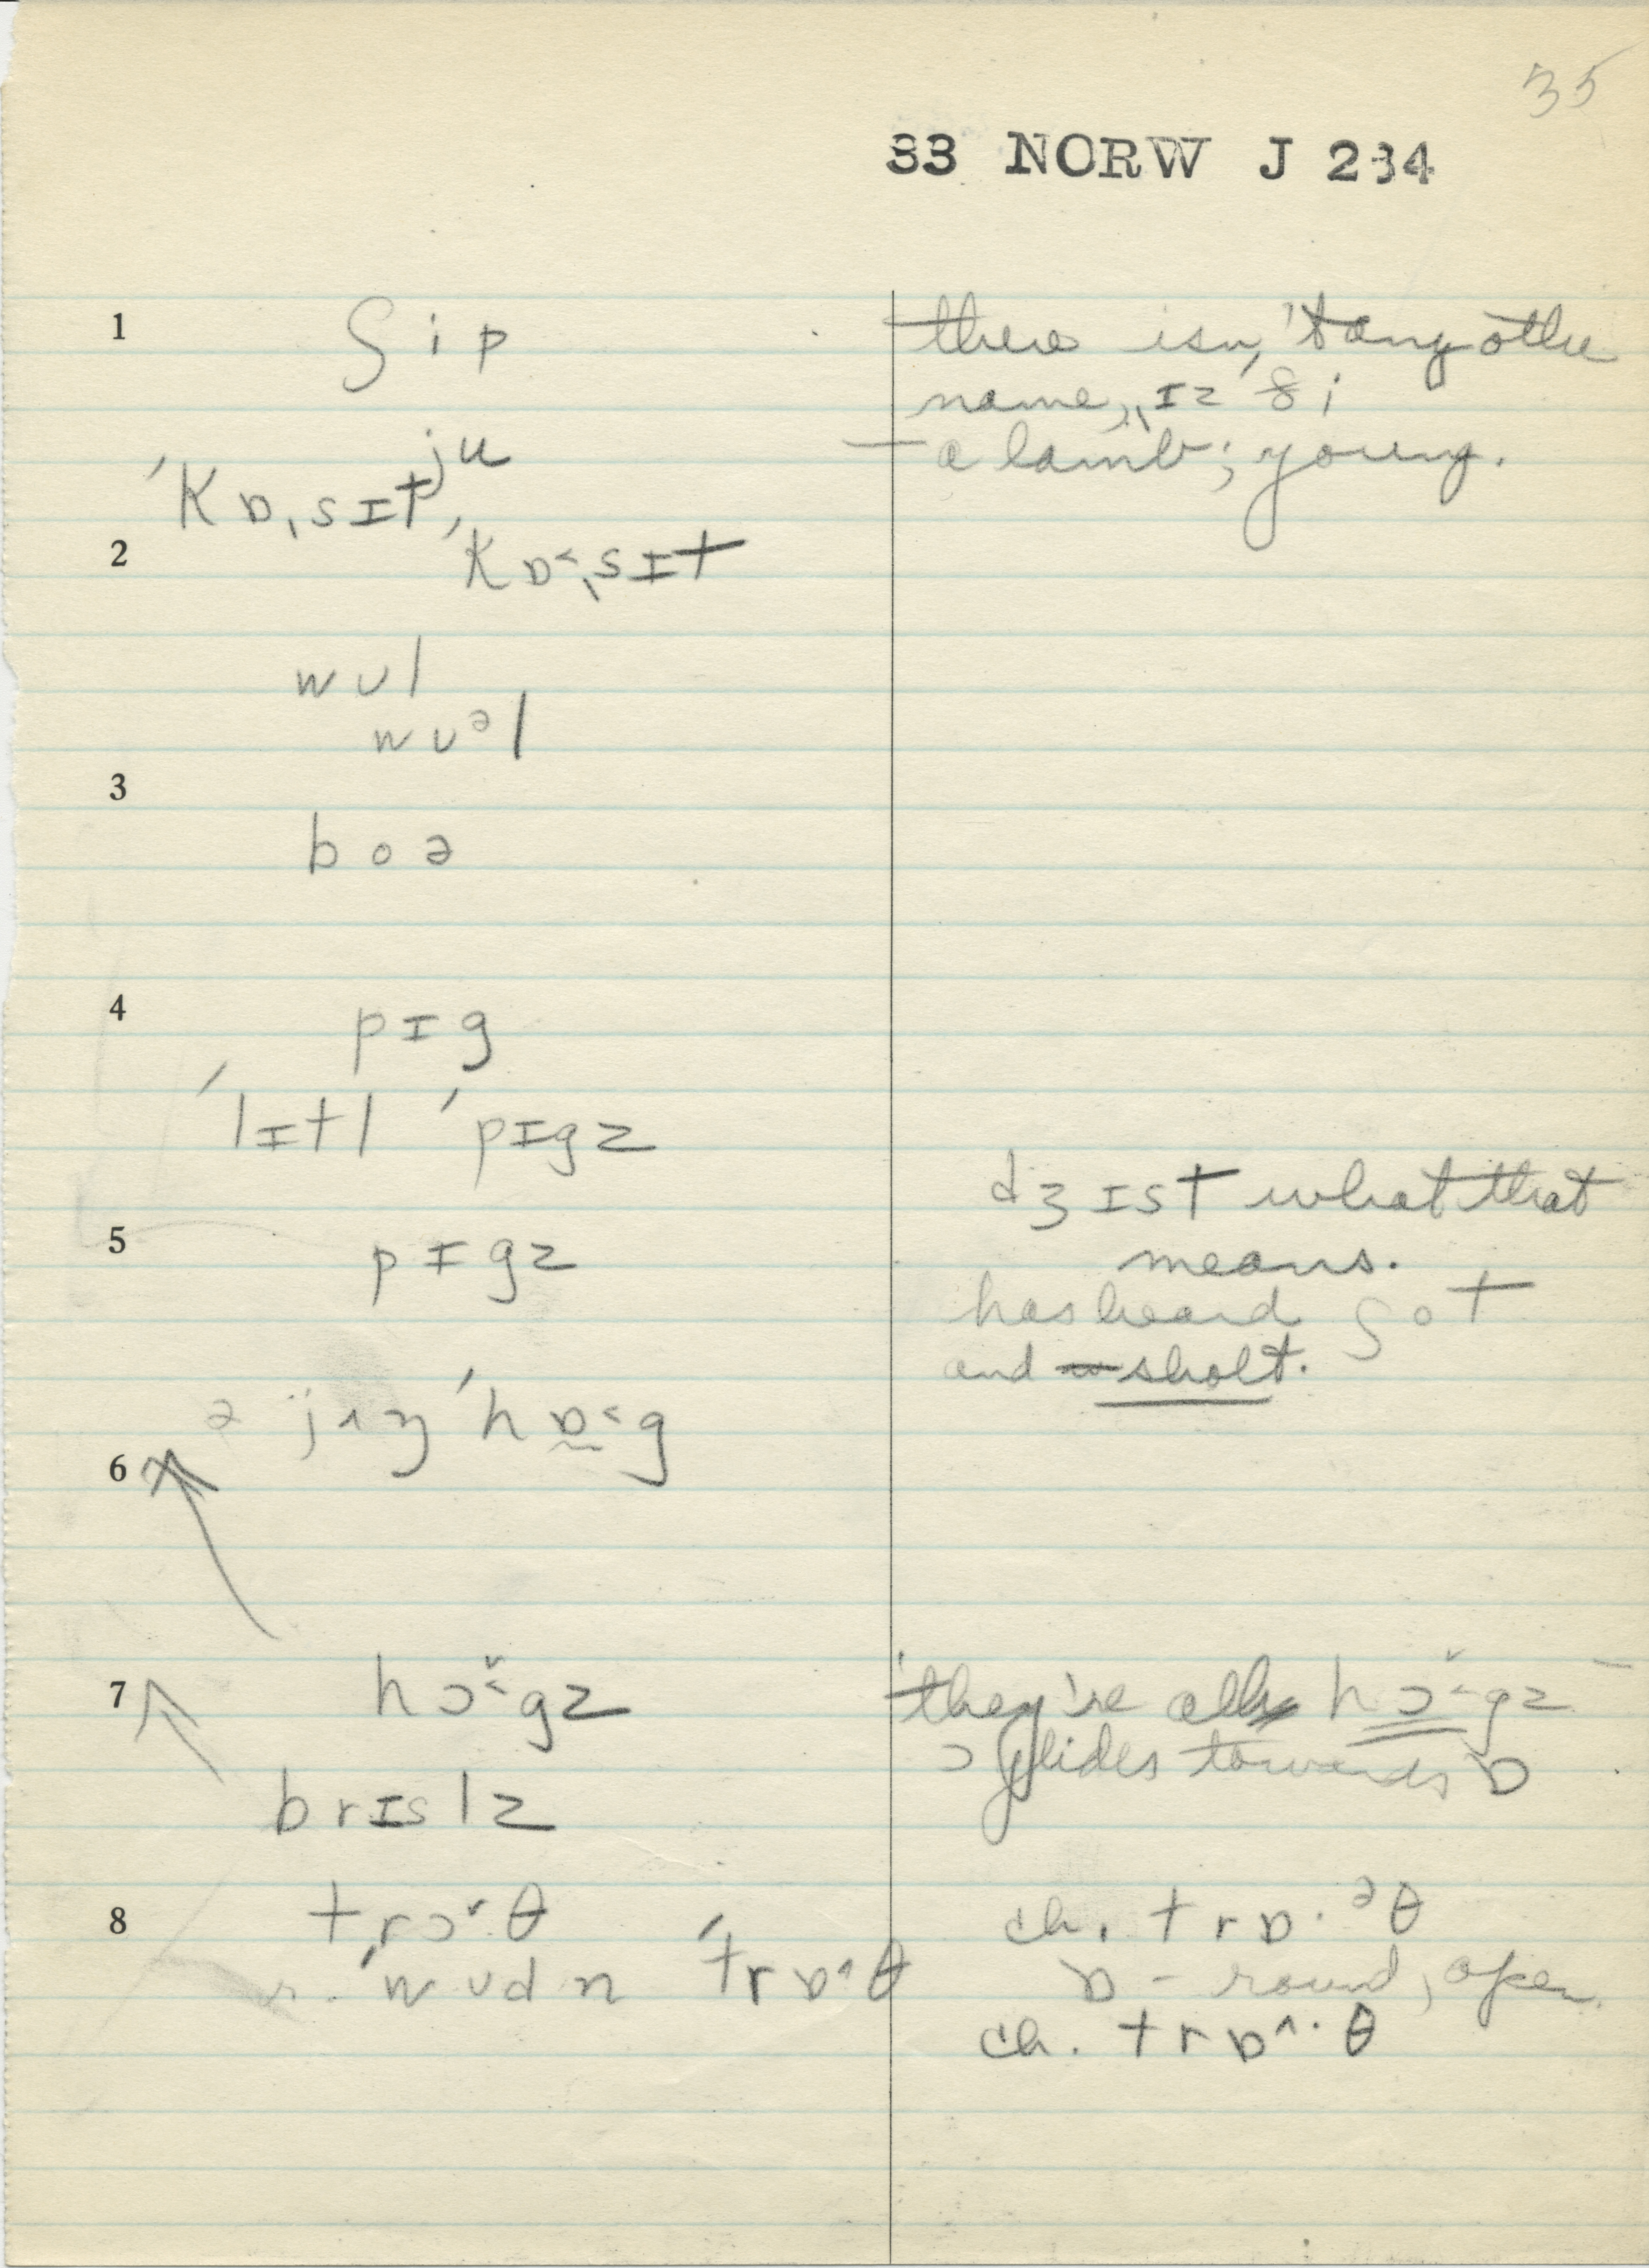 35
33 NORW J 234
1 ʃ i p
there isn't any other
name, ɪz ði
ju
— a lamb; young.
ˈkɒˌsɪt
2 ˈkɒ˂ˌsɪt
wʊl
wʊᵊl
3
boə
4 pɪg
ˈlɪtl ˈpɪgz
dʒɪst what that
5 pɪgz
means.
has heard ʃot
and sholt.
ə jʌŋ ˈhɒ˂g
6
hɔ˅˂gz
7 they're all hɔ˅˂gz
ɔ glides towards ɒ
brɪslz
8 trɔ˅θ
ch. trɒ·ᵊθ
ˈwʊdn ˈtrɒ^θ
ɒ - round, open.
ch. trɒ^·θ